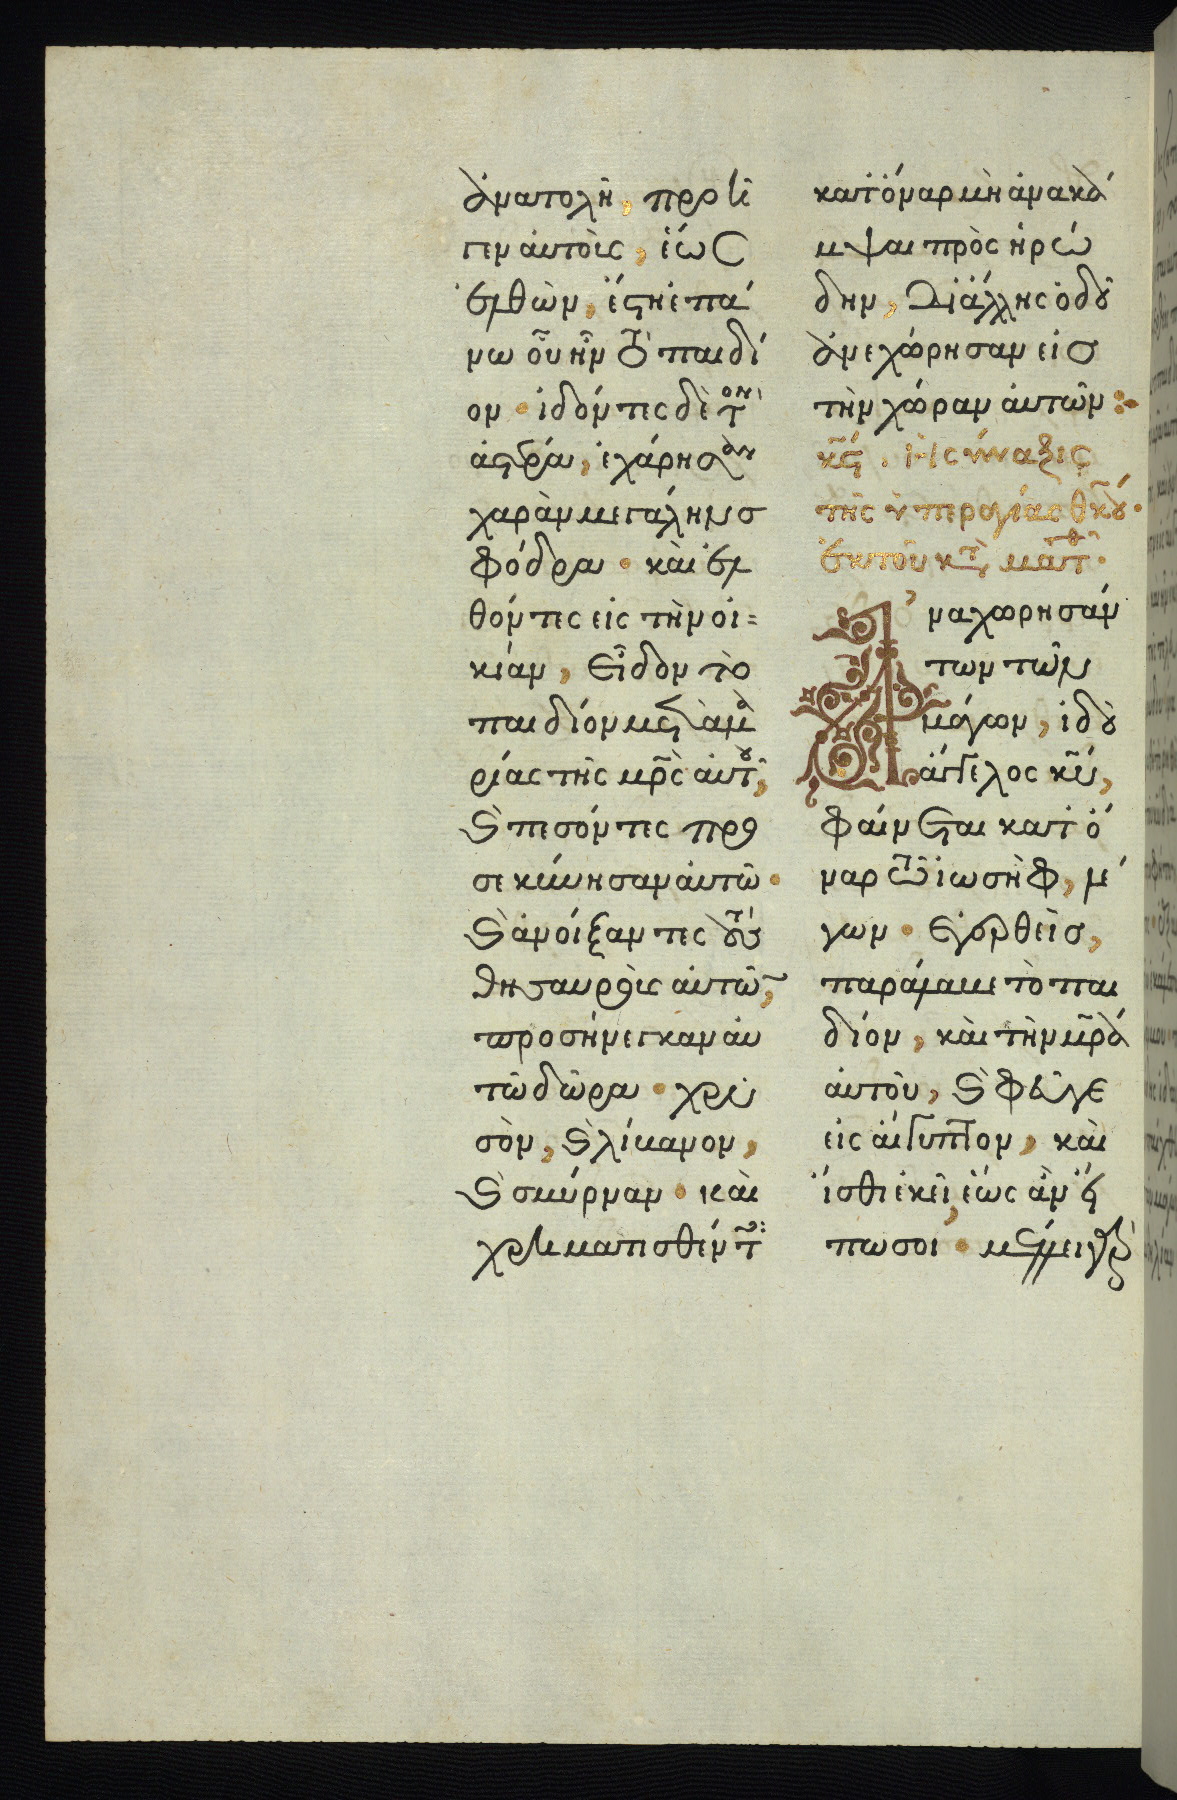 ἀνατολῆ, προῆ
γεν ἀυτοὺς, ἕως
ἐλθὼν, ἔςη ἐπά
νω οὗ ἦν τὸ παιδί
ον · ἰδόντες δὲ τὸν
ἀςέρα, ἐχάρησαν
χαρὰν μεγάλην σ
φόδρα · καὶ ἐλ
θόντες εἰς τὴν οἰ=
κίαν, εἶδον τὸ
παιδίον μετὰ μα
ρίας τῆς μρ̅ς ἀυτοῦ,
καὶ πεσόντες προ
σεκύνησαν ἀυτῶ ·
καὶ ἀνοίξαντες τοὺς
θησαυροὺς ἀυτῶν,
προσήνεγκαν ἀυ
τῶ δῶρα · χρυ
σὸν, καὶ λίβανον,
καὶ σμύρναν · καὶ
χρηματισθέντες
κατ' ὄναρ μὴ ἀνακά
μψαι πρὸς ἡρώ
δην, δι' ἄλλης ὁδοῦ
ἀνεχώρησαν εἰσ
τὴν χώραν ἀυτῶν :·
κς̅ . Ἡ σύναξις
τῆς ὑπεραγίας θκ̅ου ·
ἐκ τοῦ κτ̅ ματθ ·
Ἀναχωρησάν
των τῶν
μάγων, ἰδοὺ
ἄγγελος κυ̅,
φαίνεται κατ' ὄ
ναρ τῶ ἰωσὴφ, λέ
γων · ἐγερθεὶσ,
παράλαβε τὸ παι
δίον, καὶ τὴν μρ̅α
ἀυτοῦ, καὶ φεῦγε
εἰς ἄιγυπτον, καὶ
ἴσθι ἐκεῖ, ἕως ἂν εἴ
πω σοι · μέλλει γὰρ